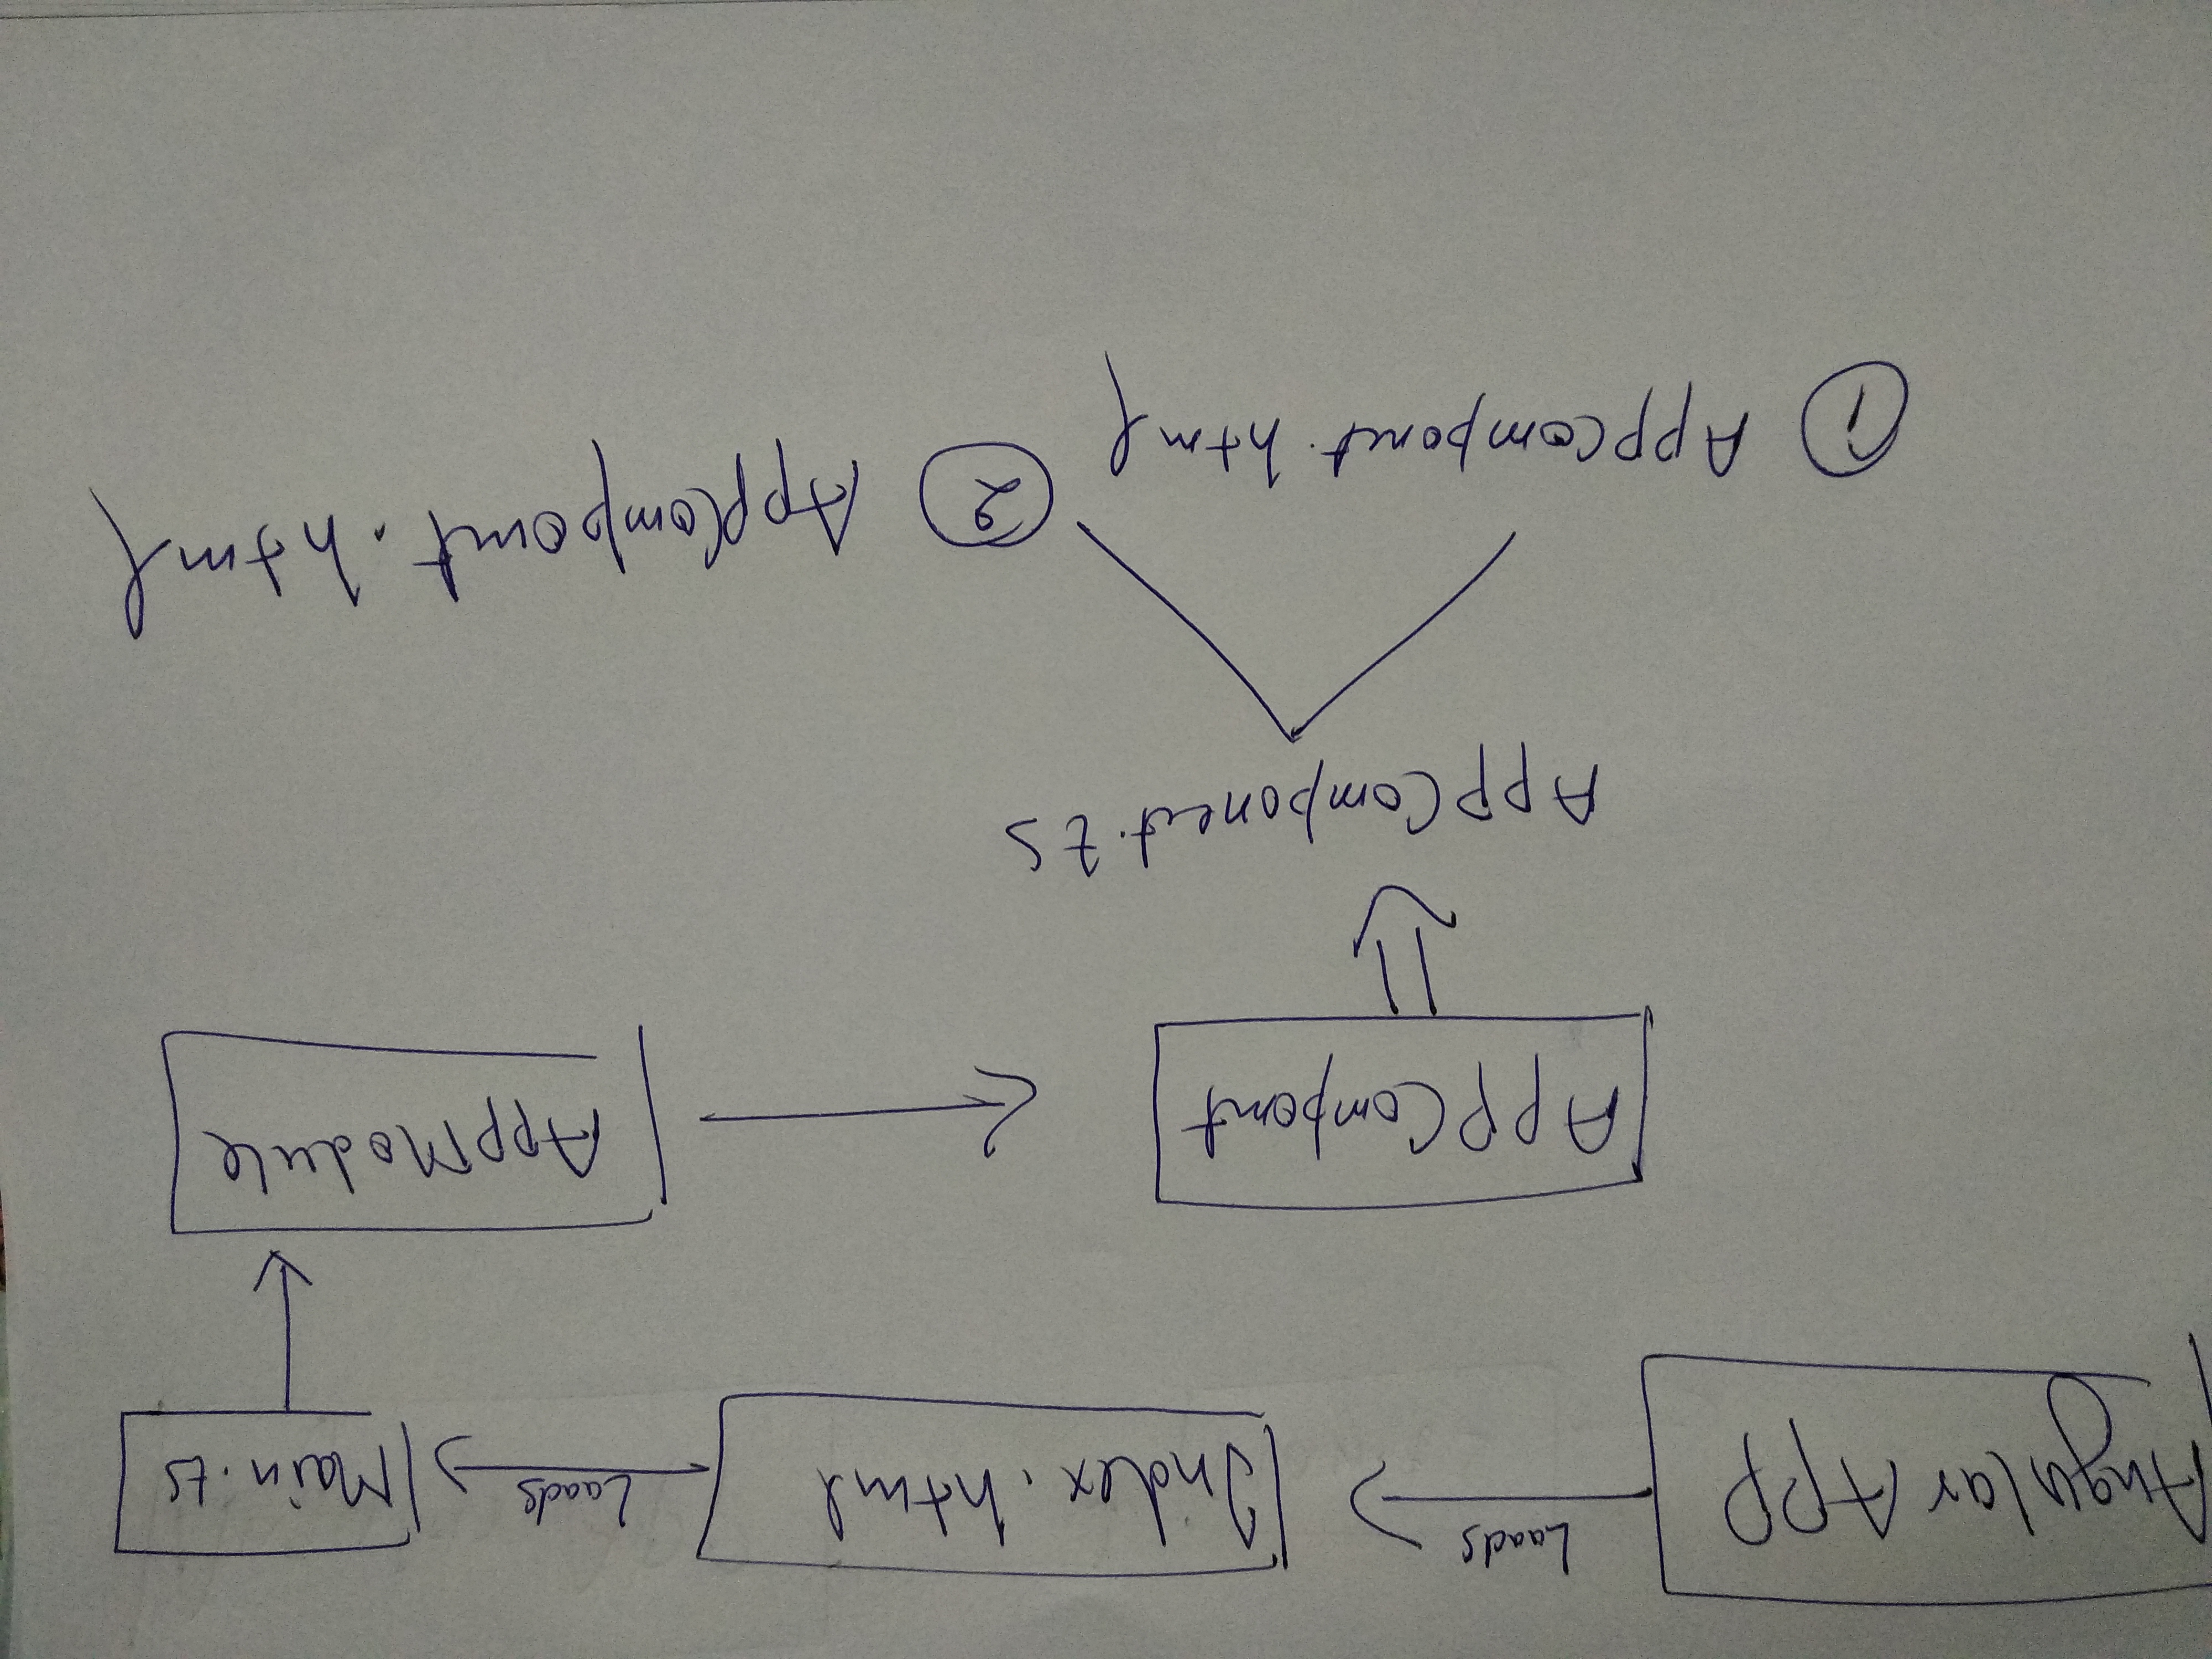 Angular App
Loads
Index.html
Loads
Main.ts
AppModule
App Compomt
App Component.ts
① Appcomponet.html
② AppCompomt.html